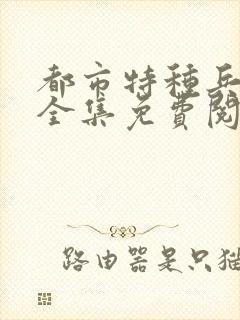 都市特种兵
全集免費閱
路由器是只猫